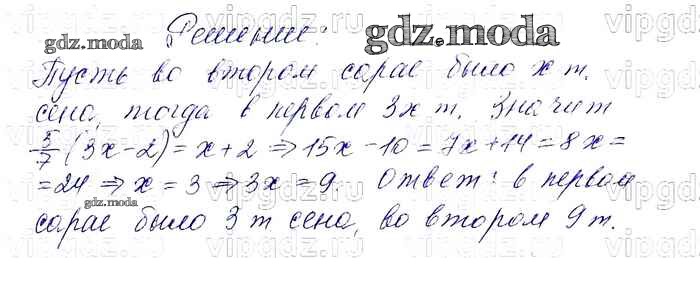 Решение:
gdz.moda
gdz.moda
Пусть во втором сарае было x т.
сена, тогда в первом 3x т. Значит
5/7 (3x-2) = x+2 ⇒ 15x-10 = 7x+14 = 8x =
= 24 ⇒ x = 3 ⇒ 3x = 9. Ответ: в первом
gdz.moda
сарае было 3 т сена, во втором 9 т.
vipgdz.ru